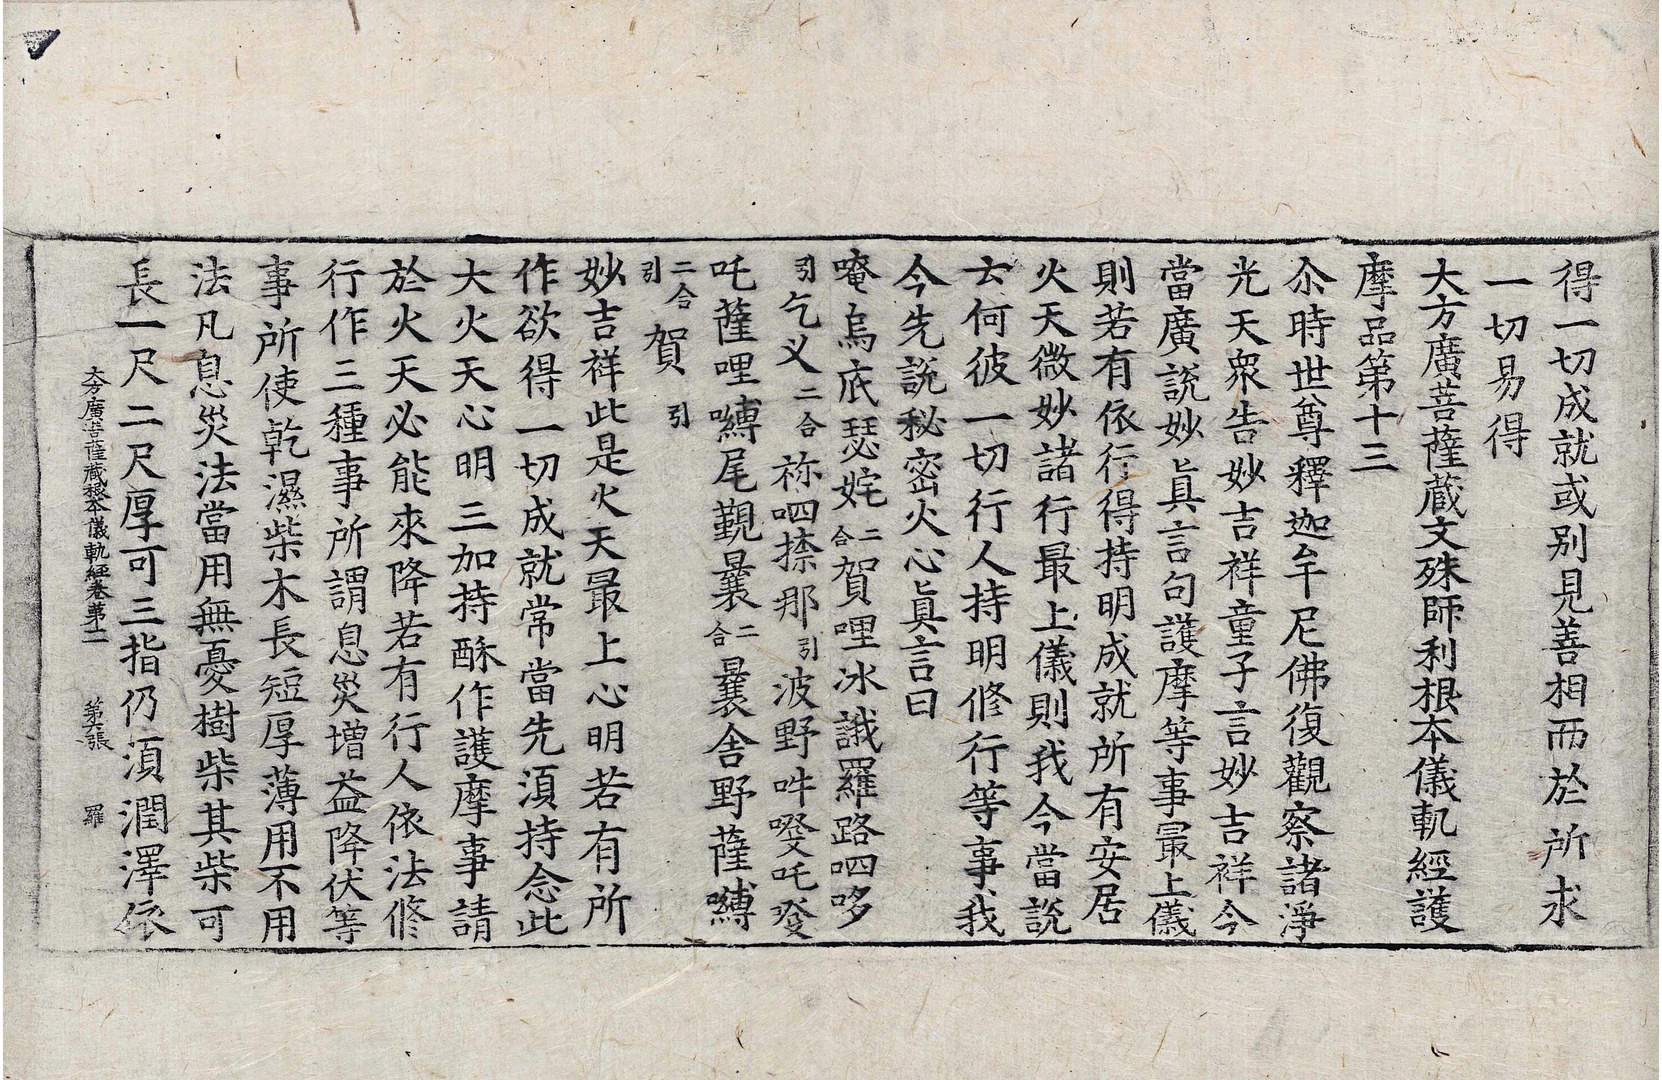 得一切成就或別見善相而於所求
一切易得
大方廣菩薩蔵文殊師利根本儀軌經護
摩品第十三
尒時世尊釋迦牟尼佛復觀察諸淨
光天衆告妙吉祥童子言妙吉祥今
當廣說妙眞言句護摩等事最上儀
則若有依行得持明成就所有安居
火天微妙諸行最上儀則我今當說
云何彼一切行人持明修行等事我
今先說秘密火心眞言曰
唵烏底瑟姹二合賀哩冰誐羅路呬哆
引乞义二合祢呬捺那引波野吽發吒發
吒薩哩嚩尾覲曩二合曩舍野薩嚩
二合引賀引
妙吉祥此是火天最上心明若有所
作欲得一切成就常當先湏持念此
大火天心明三加持酥作護摩事請
於火天必能來降若有行人依法修
行作三種事所謂息災増益降伏等
事所使乾濕柴木長短厚薄用不用
法凡息災法當用無憂樹柴其柴可
長一尺二尺厚可三指仍湏潤澤依
大方廣菩薩藏根本儀軌經卷第二 第六張 羅